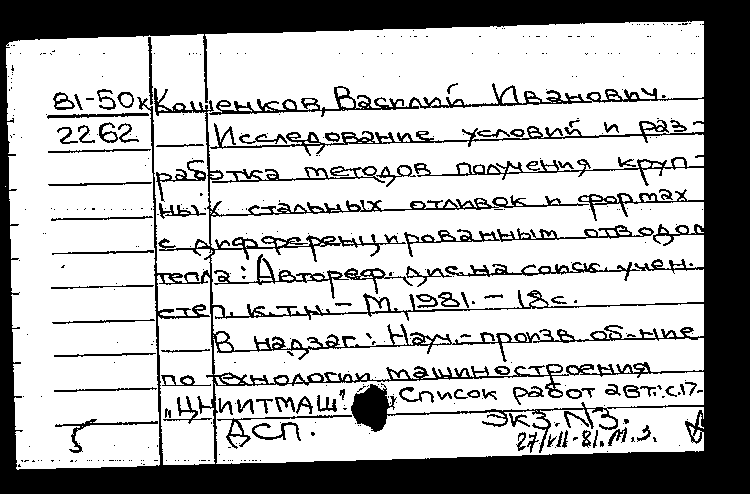 81-50к Кашенков, Василий Иванович.
2262 Исследование условий и раз-
работка методов получения круп-
ных стальных отливок и формах
с дифференцированным отводом
тепла: Автореф. дис. на соиск. учен.
степ. к.т.н. - М., 1981. - 18 с.
В надзаг.: Науч.-произв. об-ние
по технологии машиностроения
"ЦНИИТМАШ". Список работ авт.: с.17-
5 ДСП. Экз. N3.
27/VII-81. М.З.